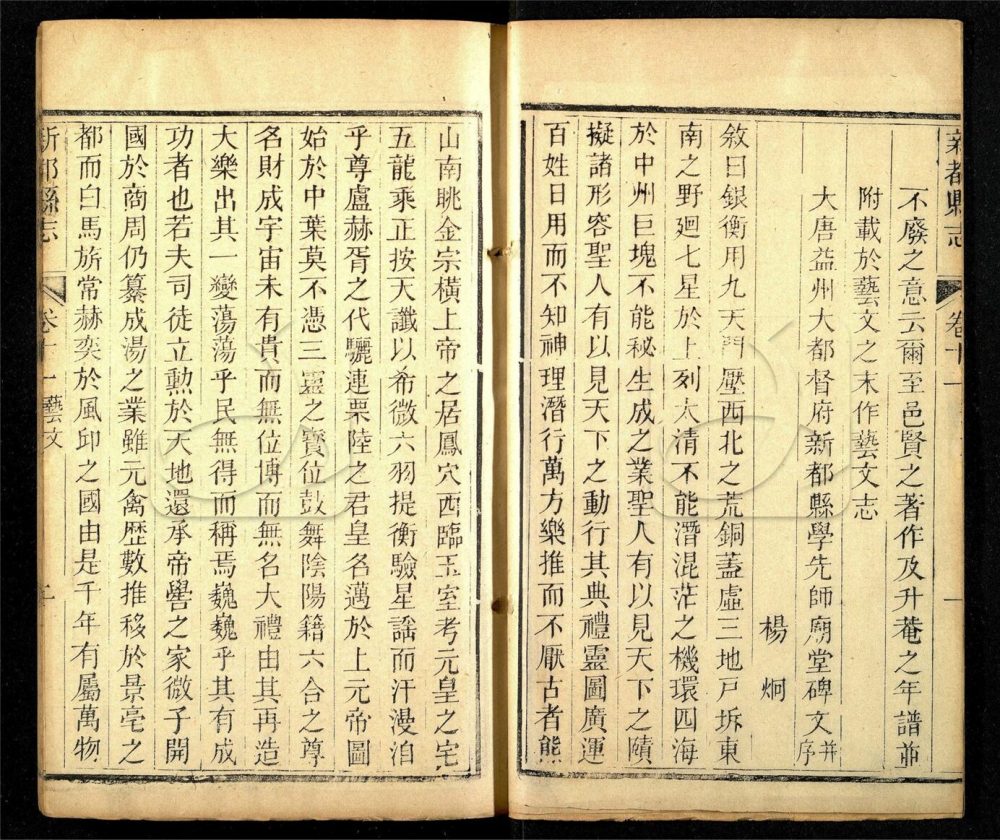 新都縣志 卷十一 一
不廢之意云爾至邑賢之著作及升菴之年譜並
附載於藝文之末作藝文志
大唐益州大都督府新都縣學先師廟堂碑文并序
楊炯
敘曰銀衡用九天門壓西北之荒銅蓋虛三地戸坼東
南之野廻七星於上列太清不能潛混茫之機環四海
於中州巨塊不能秘生成之業聖人有以見天下之賾
擬諸形容聖人有以見天下之動行其典禮靈圖廣運
百姓日用而不知神理潛行萬方樂推而不厭古者熊
山南眺金宗橫上帝之居鳳穴西臨玉室考元皇之宅
五龍乘正按天讖以希微六羽提衡驗星謡而汗漫洎
乎尊盧赫胥之代驪連栗陸之君皇名邁於上元帝圖
始於中葉莫不憑三靈之寶位鼓舞陰陽籍六合之尊
名財成宇宙未有貴而無位博而無名大禮由其再造
大樂出其一變蕩蕩乎民無得而稱焉巍巍乎其有成
功者也若夫司徒立勲於天地還承帝嚳之家微子開
國於商周仍纂成湯之業雖元禽歷數推移於景亳之
都而白馬旂常赫奕於風卬之國由是千年有屬萬物
新都縣志 卷十一藝文